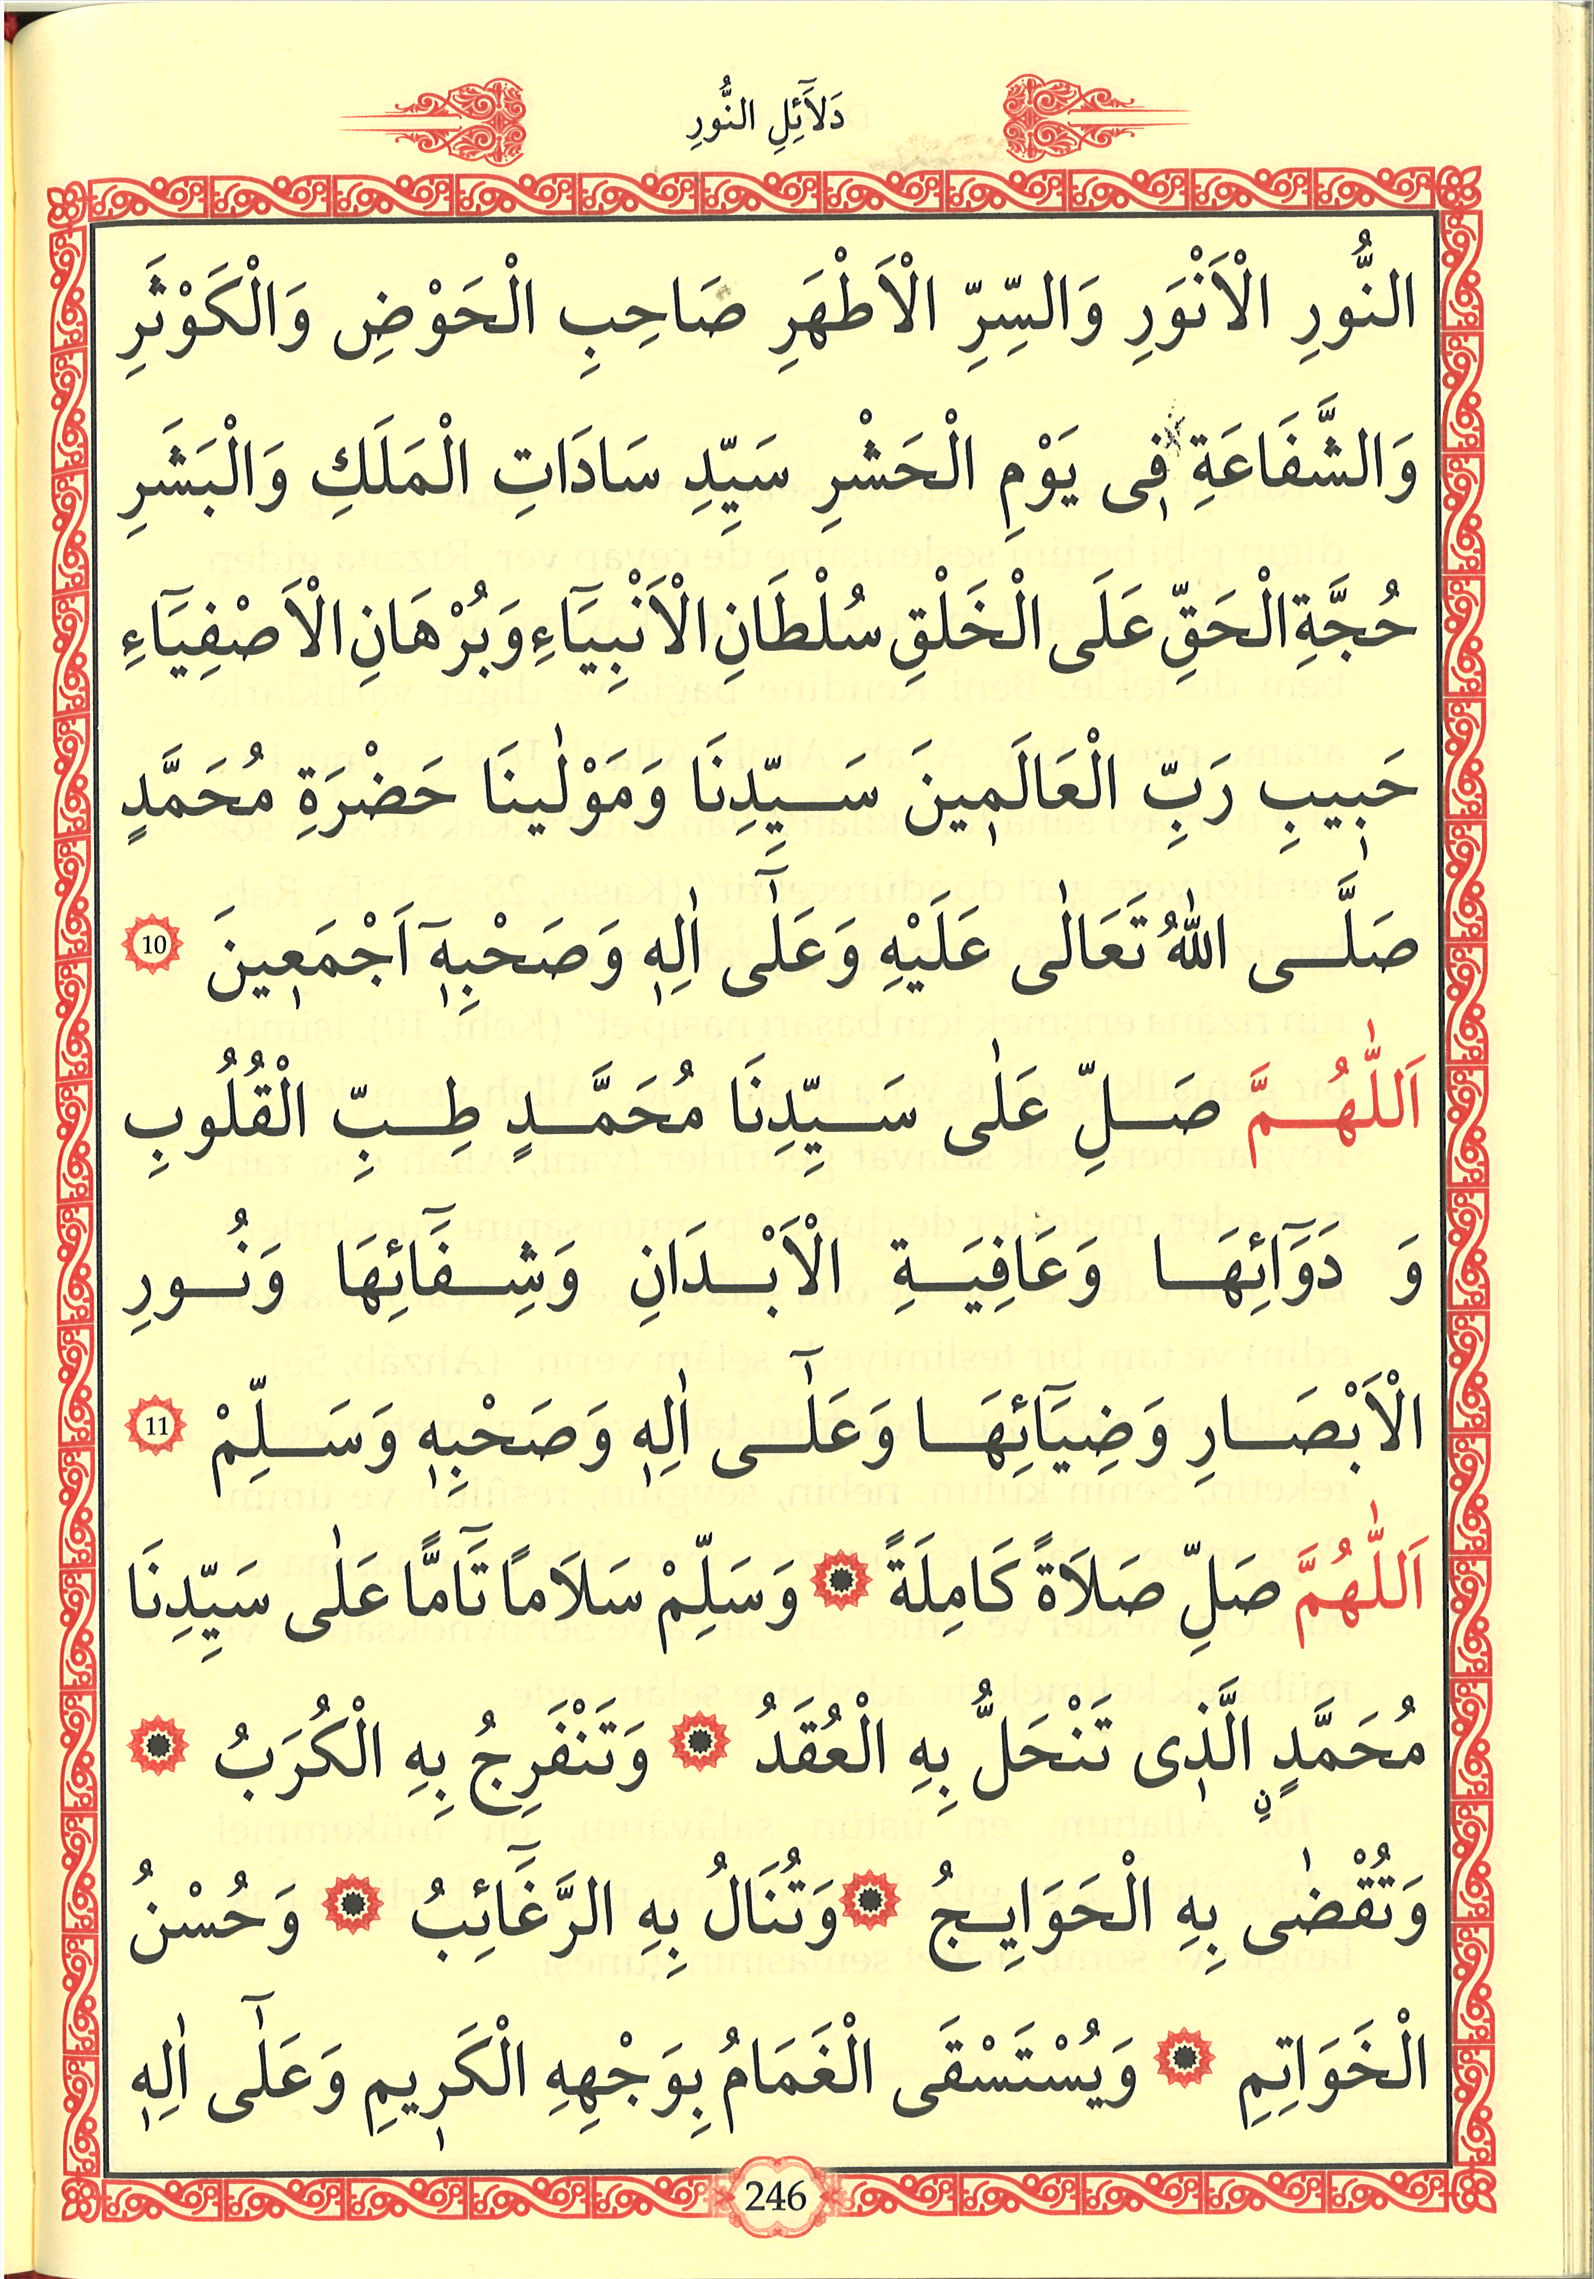 دَلَٓائِلِ النُّورِ
النُّورِ الْاَنْوَرِ وَالسِّرِّ الْاَطْهَرِ صَاحِبِ الْحَوْضِ وَالْكَوْثَرِ
وَالشَّفَاعَةِ فٖى يَوْمِ الْحَشْرِ سَيِّدِ سَادَاتِ الْمَلَكِ وَالْبَشَرِ
حُجَّةِ الْحَقِّ عَلَى الْخَلْقِ سُلْطَانِ الْاَنْبِيَٓاءِ وَبُرْهَانِ الْاَصْفِيَٓاءِ
حَبٖيبِ رَبِّ الْعَالَمٖينَ سَيِّدِنَا وَمَوْلٰينَا حَضْرَةِ مُحَمَّدٍ
صَلَّى اللّٰهُ تَعَالٰى عَلَيْهِ وَعَلٰٓى اٰلِهٖ وَصَحْبِهٖٓ اَجْمَعٖينَ 10
اَللّٰهُمَّ صَلِّ عَلٰى سَيِّدِنَا مُحَمَّدٍ طِبِّ الْقُلُوبِ
وَ دَوَٓائِهَا وَعَافِيَةِ الْاَبْدَانِ وَشِفَٓائِهَا وَنُورِ
الْاَبْصَارِ وَضِيَٓائِهَا وَعَلٰٓى اٰلِهٖ وَصَحْبِهٖ وَسَلِّمْ 11
اَللّٰهُمَّ صَلِّ صَلَاةً كَامِلَةً ۞ وَسَلِّمْ سَلَامًا تَٓامًّا عَلٰى سَيِّدِنَا
مُحَمَّدٍ نِ الَّذٖى تَنْحَلُّ بِهِ الْعُقَدُ ۞ وَتَنْفَرِجُ بِهِ الْكُرَبُ ۞
وَتُقْضٰى بِهِ الْحَوَايِجُ ۞ وَتُنَالُ بِهِ الرَّغَٓائِبُ ۞ وَحُسْنُ
الْخَوَاتِمِ ۞ وَيُسْتَسْقَى الْغَمَامُ بِوَجْهِهِ الْكَرٖيمِ وَعَلٰٓى اٰلِهٖ
246